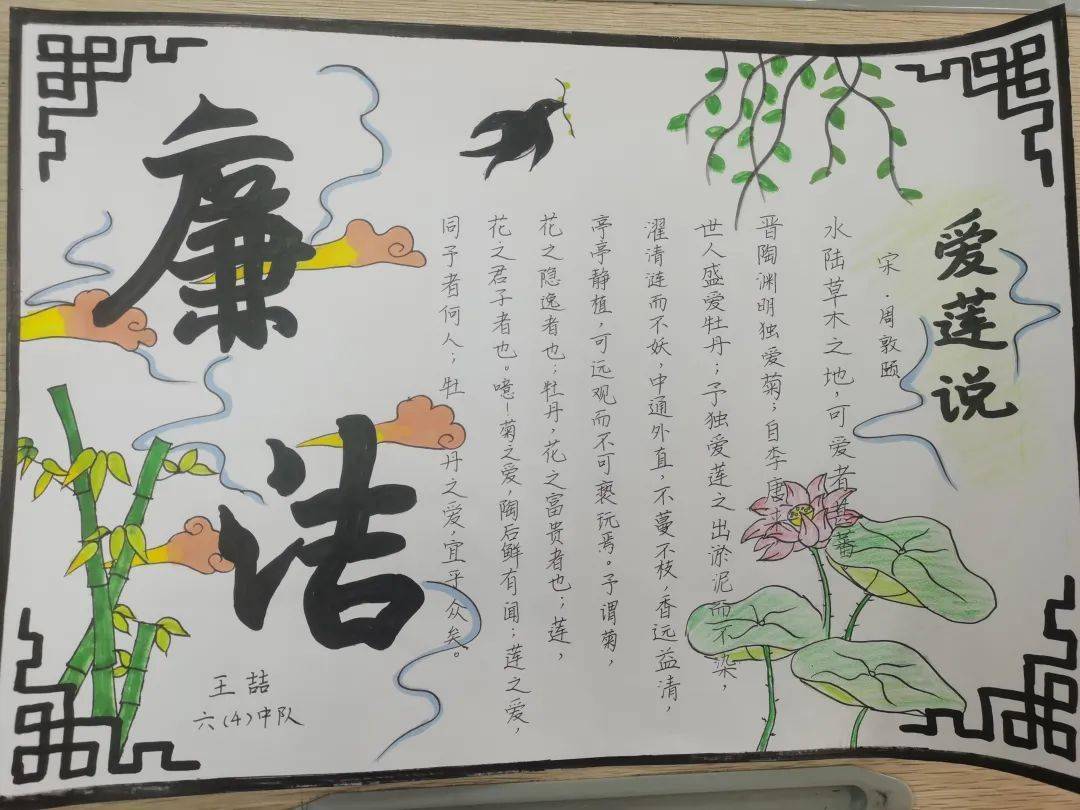 爱莲说
宋·周敦颐
水陆草木之地,可爱者甚蕃
晋陶渊明独爱菊;自李唐
世人盛爱牡丹;予独爱莲之出淤泥而不染,
濯清涟而不妖,中通外直,不蔓不枝,香远益清,
亭亭静植,可远观而不可亵玩焉。予谓菊,
花之隐逸者也;牡丹,花之富贵者也;莲,
花之君子者也。噫!菊之爱,陶后鲜有闻;莲之爱,
同予者何人;牡丹之爱,宜乎众矣。
廉洁
王喆
六(4)中队